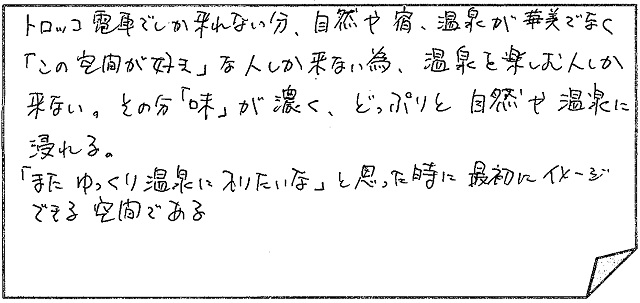 トロッコ電車でしか来れない分、自然や宿、温泉が華美でなく
「この空間が好き」な人しか来ない為、温泉を楽しむ人しか
来ない。その分「味」が濃く、どっぷりと自然や温泉に
浸れる。
「またゆっくり温泉に入りたいな」と思った時に最初にイメージ
できる空間である